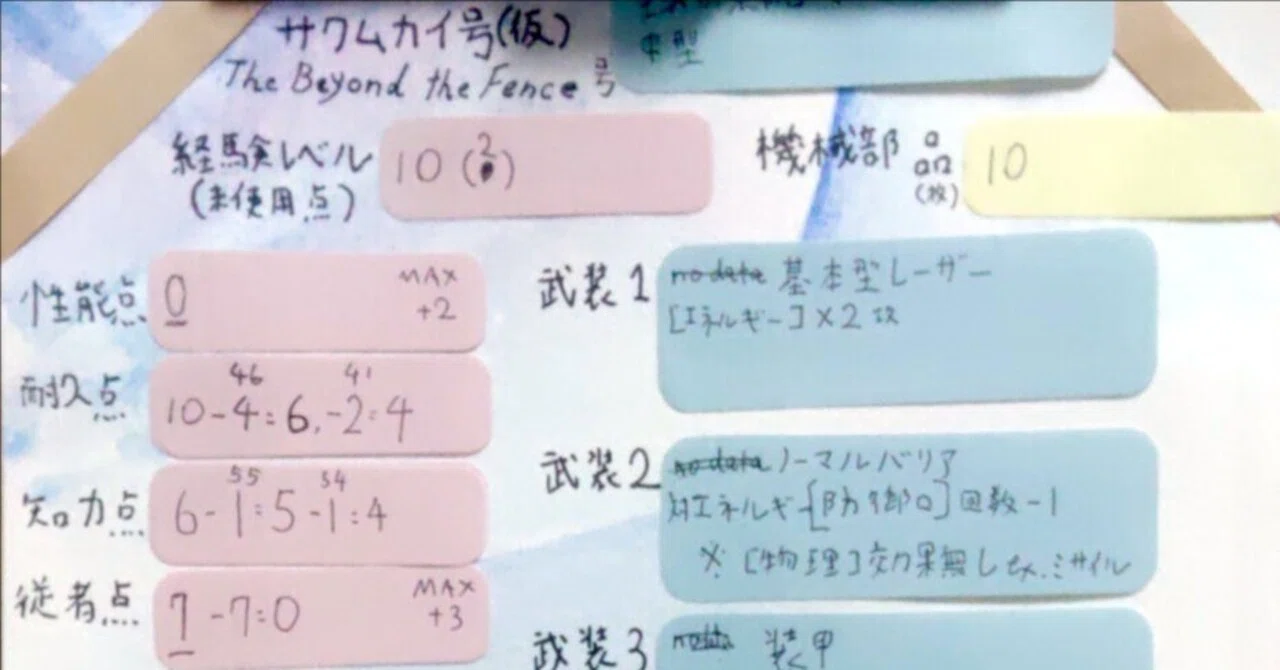 サクムカイ号(仮)
The Beyond the Fence 号
中型
経験レベル
(未使用点)
10 (2)
機械部品
(枚)
10
性能点
0
MAX
+2
耐久点
46 41
10-4=6,-2=4
知力点
55 54
6-1=5-1=4
従者点
7-7=0
MAX
+3
武装1
no data 基本型レーザー
[エネルギー]×2攻
武装2
no data ノーマルバリア
対エネルギー[防御0]回数-1
※[物理]効果無し ex.ミサイル
武装3
no data 装甲